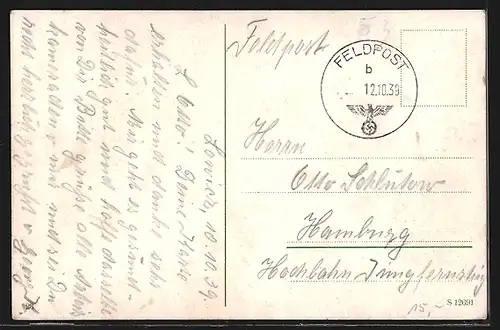 Lowicz, 10.10.39.
L. Otto! Deine Karte
erhalten und danke sehr
dafür. Mir geht es gesund-
heitlich gut und hoffe dasselbe
von Dir. Bitte grüße alle Arbeits-
kameraden v. mir und sei Du
recht herzlich gegrüßt v. Georg
Feldpost
FELDPOST
b
12.10.39
Herrn
Otto Schlütow
Hamburg
Hochbahn Jungfernstieg
S 12691
15,-